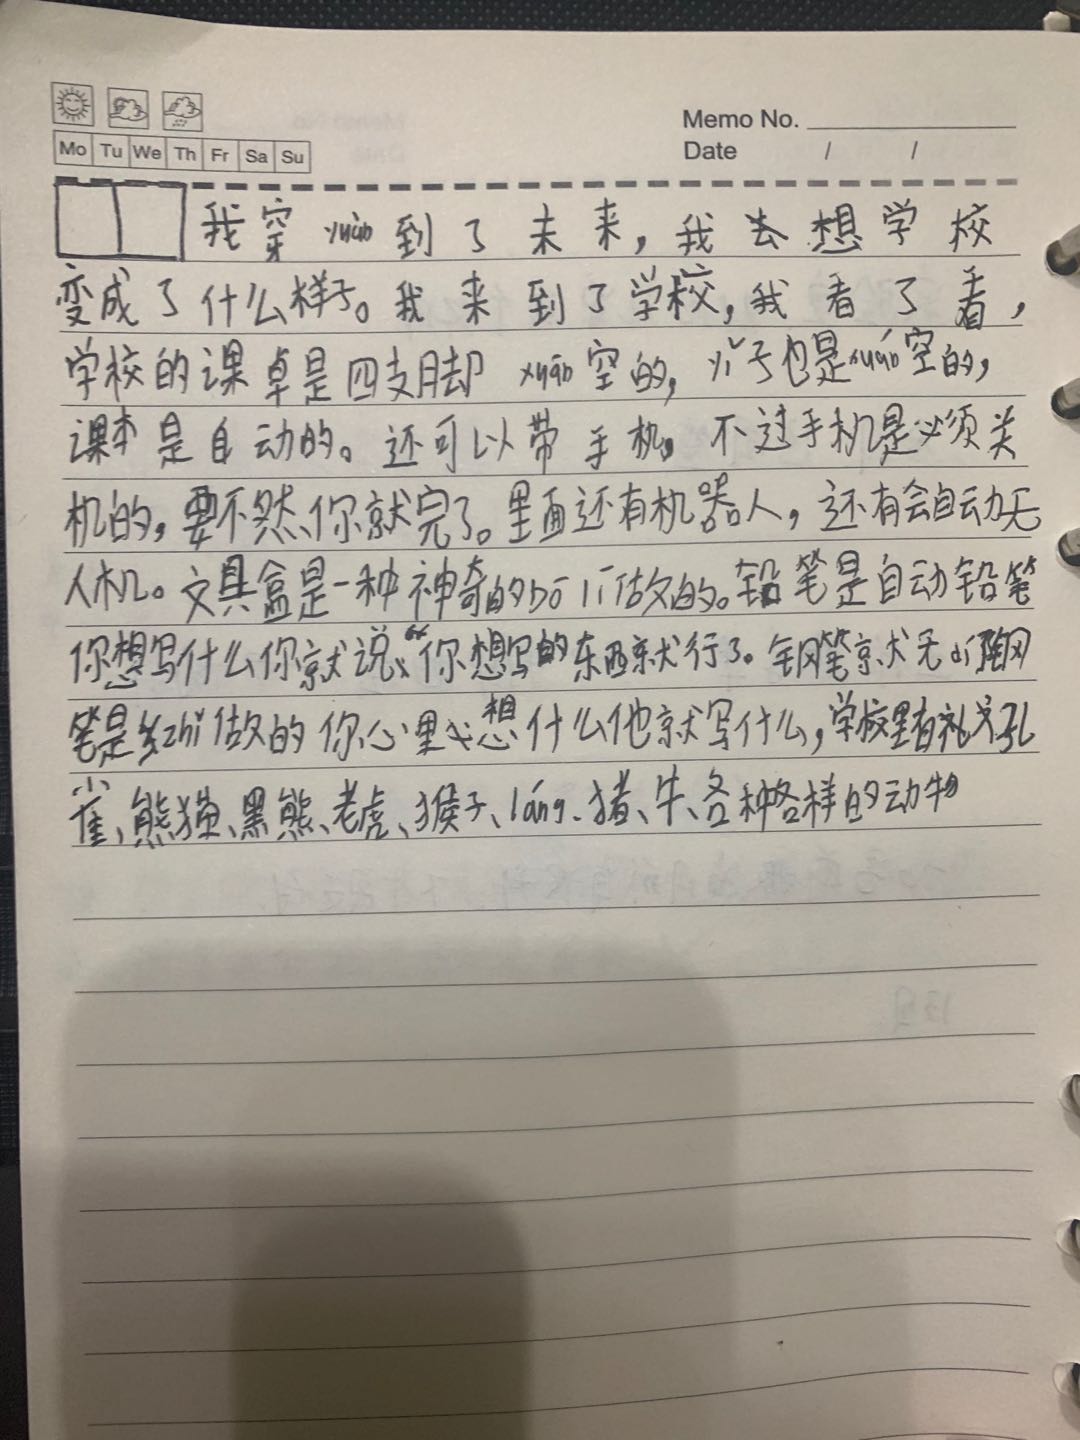 Memo No.
Mo Tu We Th Fr Sa Su
Date / /
我穿yuàn到了未来，我去想学校
变成了什么样子。我来到了学校，我看了看，
学校的课卓是四支脚xuán空的，yǐ子也是xuán空的，
课本是自动的。还可以带手机，不过手机是必须关
机的，要不然你就完了。里面还有机器人，还有会自动无
人机。文具盒是一种神奇的bō lí做的。铅笔是自动铅笔
你想写什么你就说“你想写的东西就行了。钢笔就无
笔是zhǐ做的你心里想什么他就写什么，学校里有孔
雀、熊猫、黑熊、老虎、猴子、láng、猪、牛、各种各样的动物